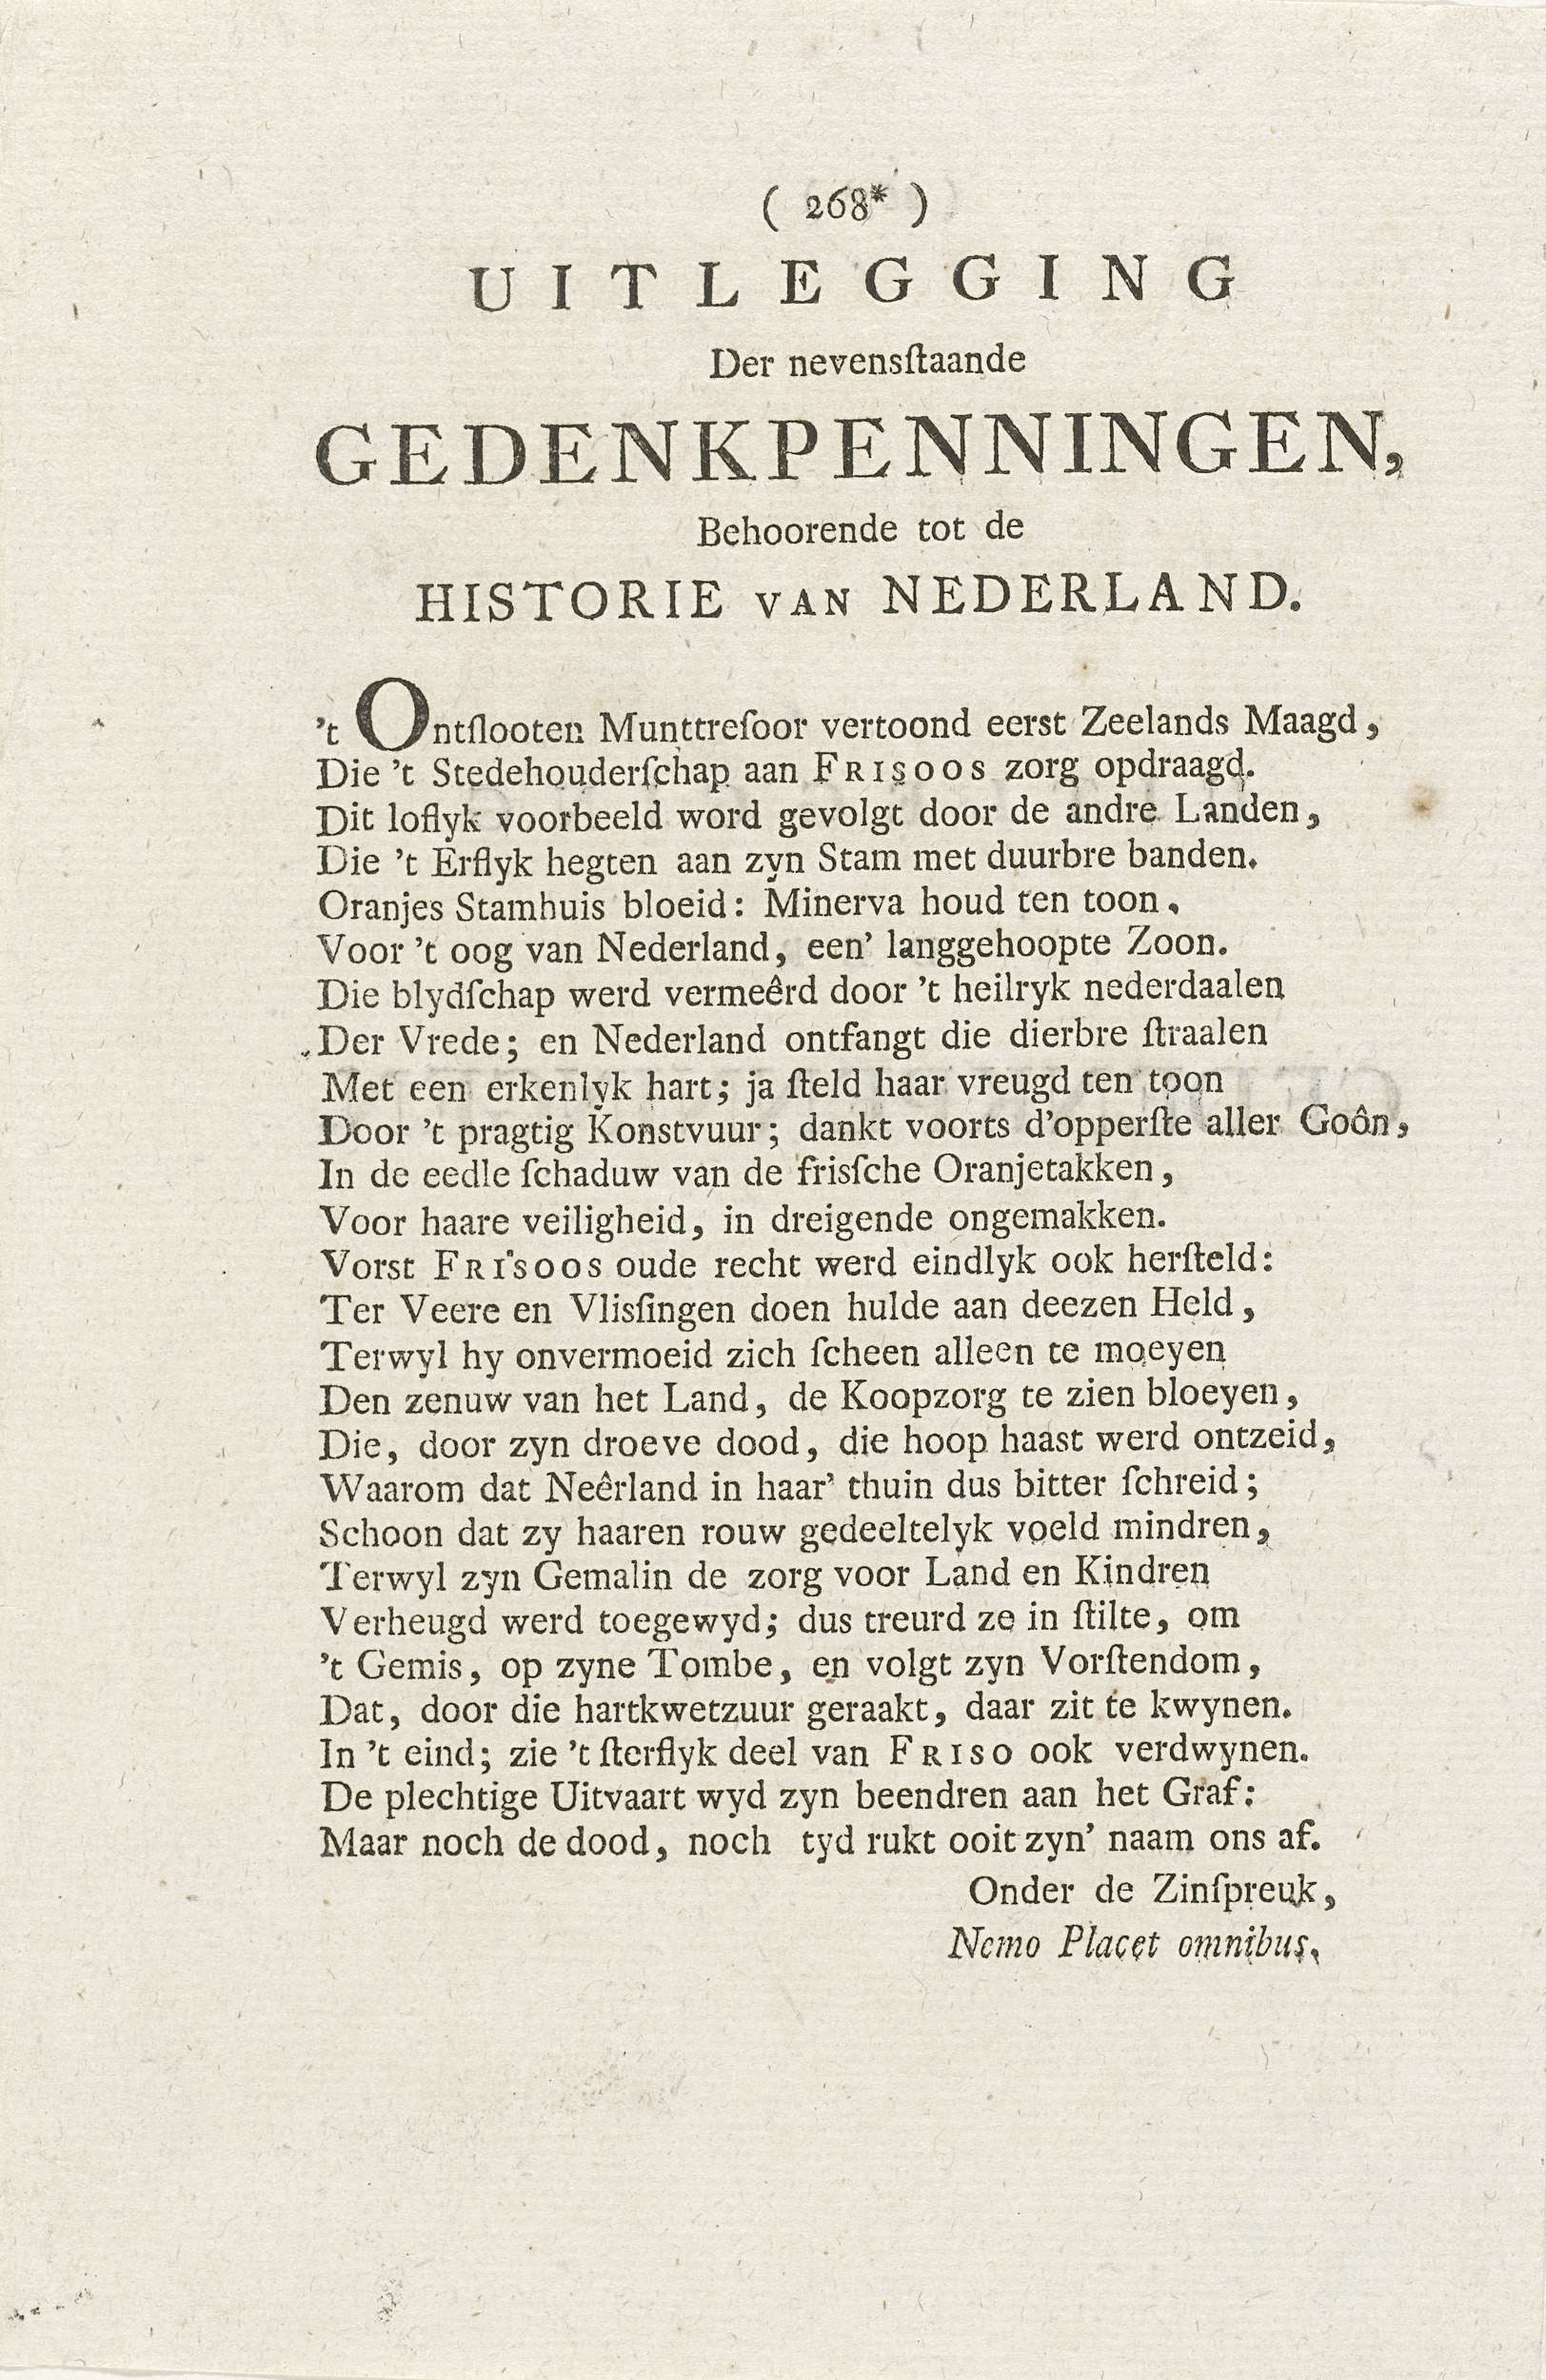 ( 268* )
UITLEGGING
Der nevensſtaande
GEDENKPENNINGEN,
Behoorende tot de
HISTORIE VAN NEDERLAND.
't Ontſlooten Munttreſoor vertoond eerst Zeelands Maagd,
Die 't Stedehouderſchap aan FRISOOS zorg opdraagd.
Dit loflyk voorbeeld word gevolgt door de andre Landen,
Die 't Erflyk hegten aan zyn Stam met duurbre banden.
Oranjes Stamhuis bloeid: Minerva houd ten toon,
Voor 't oog van Nederland, een' langgehoopte Zoon.
Die blydſchap werd vermeêrd door 't heilryk nederdaalen
Der Vrede; en Nederland ontfangt die dierbre ſtraalen
Met een erkenlyk hart; ja ſteld haar vreugd ten toon
Door 't pragtig Konstvuur; dankt voorts d'opperſte aller Goôn,
In de eedle ſchaduw van de frisſche Oranjetakken,
Voor haare veiligheid, in dreigende ongemakken.
Vorst FRISOOS oude recht werd eindlyk ook herſteld:
Ter Veere en Vlisſingen doen hulde aan deezen Held,
Terwyl hy onvermoeid zich ſcheen alleen te moeyen
Den zenuw van het Land, de Koopzorg te zien bloeyen,
Die, door zyn droeve dood, die hoop haast werd ontzeid,
Waarom dat Neêrland in haar' thuin dus bitter ſchreid;
Schoon dat zy haaren rouw gedeeltelyk voeld mindren,
Terwyl zyn Gemalin de zorg voor Land en Kindren
Verheugd werd toegewyd; dus treurd ze in ſtilte, om
't Gemis, op zyne Tombe, en volgt zyn Vorſtendom,
Dat, door die hartkwetzuur geraakt, daar zit te kwynen.
In 't eind; zie 't ſterflyk deel van FRISO ook verdwynen.
De plechtige Uitvaart wyd zyn beendren aan het Graf:
Maar noch de dood, noch tyd rukt ooit zyn' naam ons af.
Onder de Zinſpreuk,
Nemo Placet omnibus.